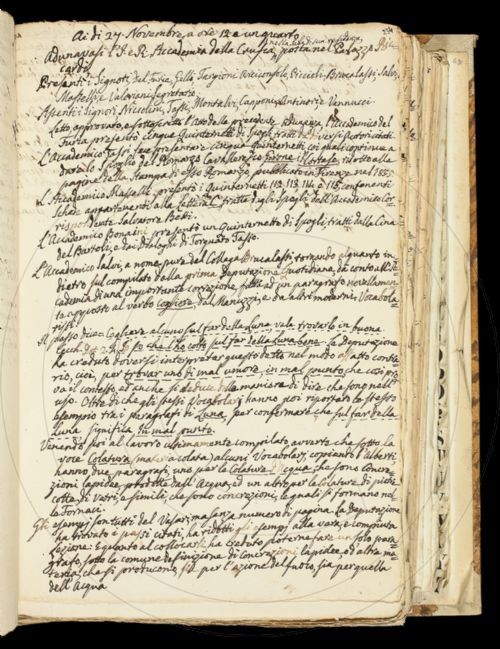 Ac di 27. Novembre, a ore 12 e un quarto
Adunavasi l'I. e R. Accademia della Crusca, nella sede di sua residenza, posta nel Palazzo Ric-
cardi.
Presenti i Signori, Del Furia, Gelli, Targioni Arciconsolo, Piccioli, Brucalassi, Salvi,
Masselli, e Valeriani Segretario.
Assenti i Signori Niccolini, Tassi, Montalvi, Capponi, Antinori e Vannucci
Letto, approvato, e sottoscritto l'Atto della precedente adunanza, l'Accademico del
Furia presentò cinque Quinternetti di Spogli tratti da diversi autori citati
L'Accademico Tassi fece presentare cinque Quinternetti, coi quali continua a
dare lo spoglio del Romanzo Cavalleresco Girone il Cortese, ridotto alle
pagine della Stampa di esso Romanzo, pubblicato in Firenze nel 1855
L'Accademico Masselli presentò i Quinternetti 112. 113. 114 e 115 contenenti
Schede appartenenti alla Lettera C, tratte dagli Spogli dell'Accademico Cor-
rispondente Salvatore Betti.
L'Accademico Bonaini presentò un Quinternetto di Spogli tratti dalla Cina
del Bartoli, e dai Dialoghi di Torquato Tasso.
L'Accademico Salvi, a nome pure del Collega Brucalassi, tornando alquanto in-
dietro sul compilato dalla prima Deputazione Quotidiana, dà conto all'Ac-
cademia di una importante correzione fatta ad un paragrafo novellamen-
te apposto al verbo Cogliere dal Manuzzi, e da altri moderni Vocabola-
risti.
Il passo dice = Cogliere alcuno sul far della Luna vale trovarlo in buona
Cecch. Dot. 2. 5. Io che l'ho colto sul far della Luna bene = La Deputazione
ha creduto doversi interpretar questo detto nel modo affatto contra-
rio, cioè, per trovar uno di mal umore, in mal punto, che così pro-
va il contesto, ed anche si deduce dalla maniera di dire che sono nell'
uso. Oltre di che gli stessi Vocabolarj hanno poi riportato lo stesso
esempio tra i paragrafi di Luna, per confermare che sul far della
Luna significa in mal punto.
Venendo poi al lavoro ultimamente compilato, avverte che sotto la
voce Colatura (materia colata) alcuni Vocabolarj, copiando l'Alberti
hanno due paragrafi, uno per le Colature d'acqua che sono Concre-
zioni lapidee, prodotte dall'Acqua, ed un altro per le Colature di pietre
cotte di vetri e simili, che sono concrezioni, le quali si formano nel-
le Fornaci.
Gli esempj son tutti del Vasari, ma senza numero di pagina. La Deputazione
ha trovato i passi citati, ha ridotti gli esempi alla vera, e compiuta
lezione: E quanto al collocarli ha creduto poterne fare un solo para-
grafo, sotto la comune definizione di Concrezioni lapidee, o d'altra ma-
teria, che si producono, sia per l'azione del fuoco, sia per quella
dell'Acqua